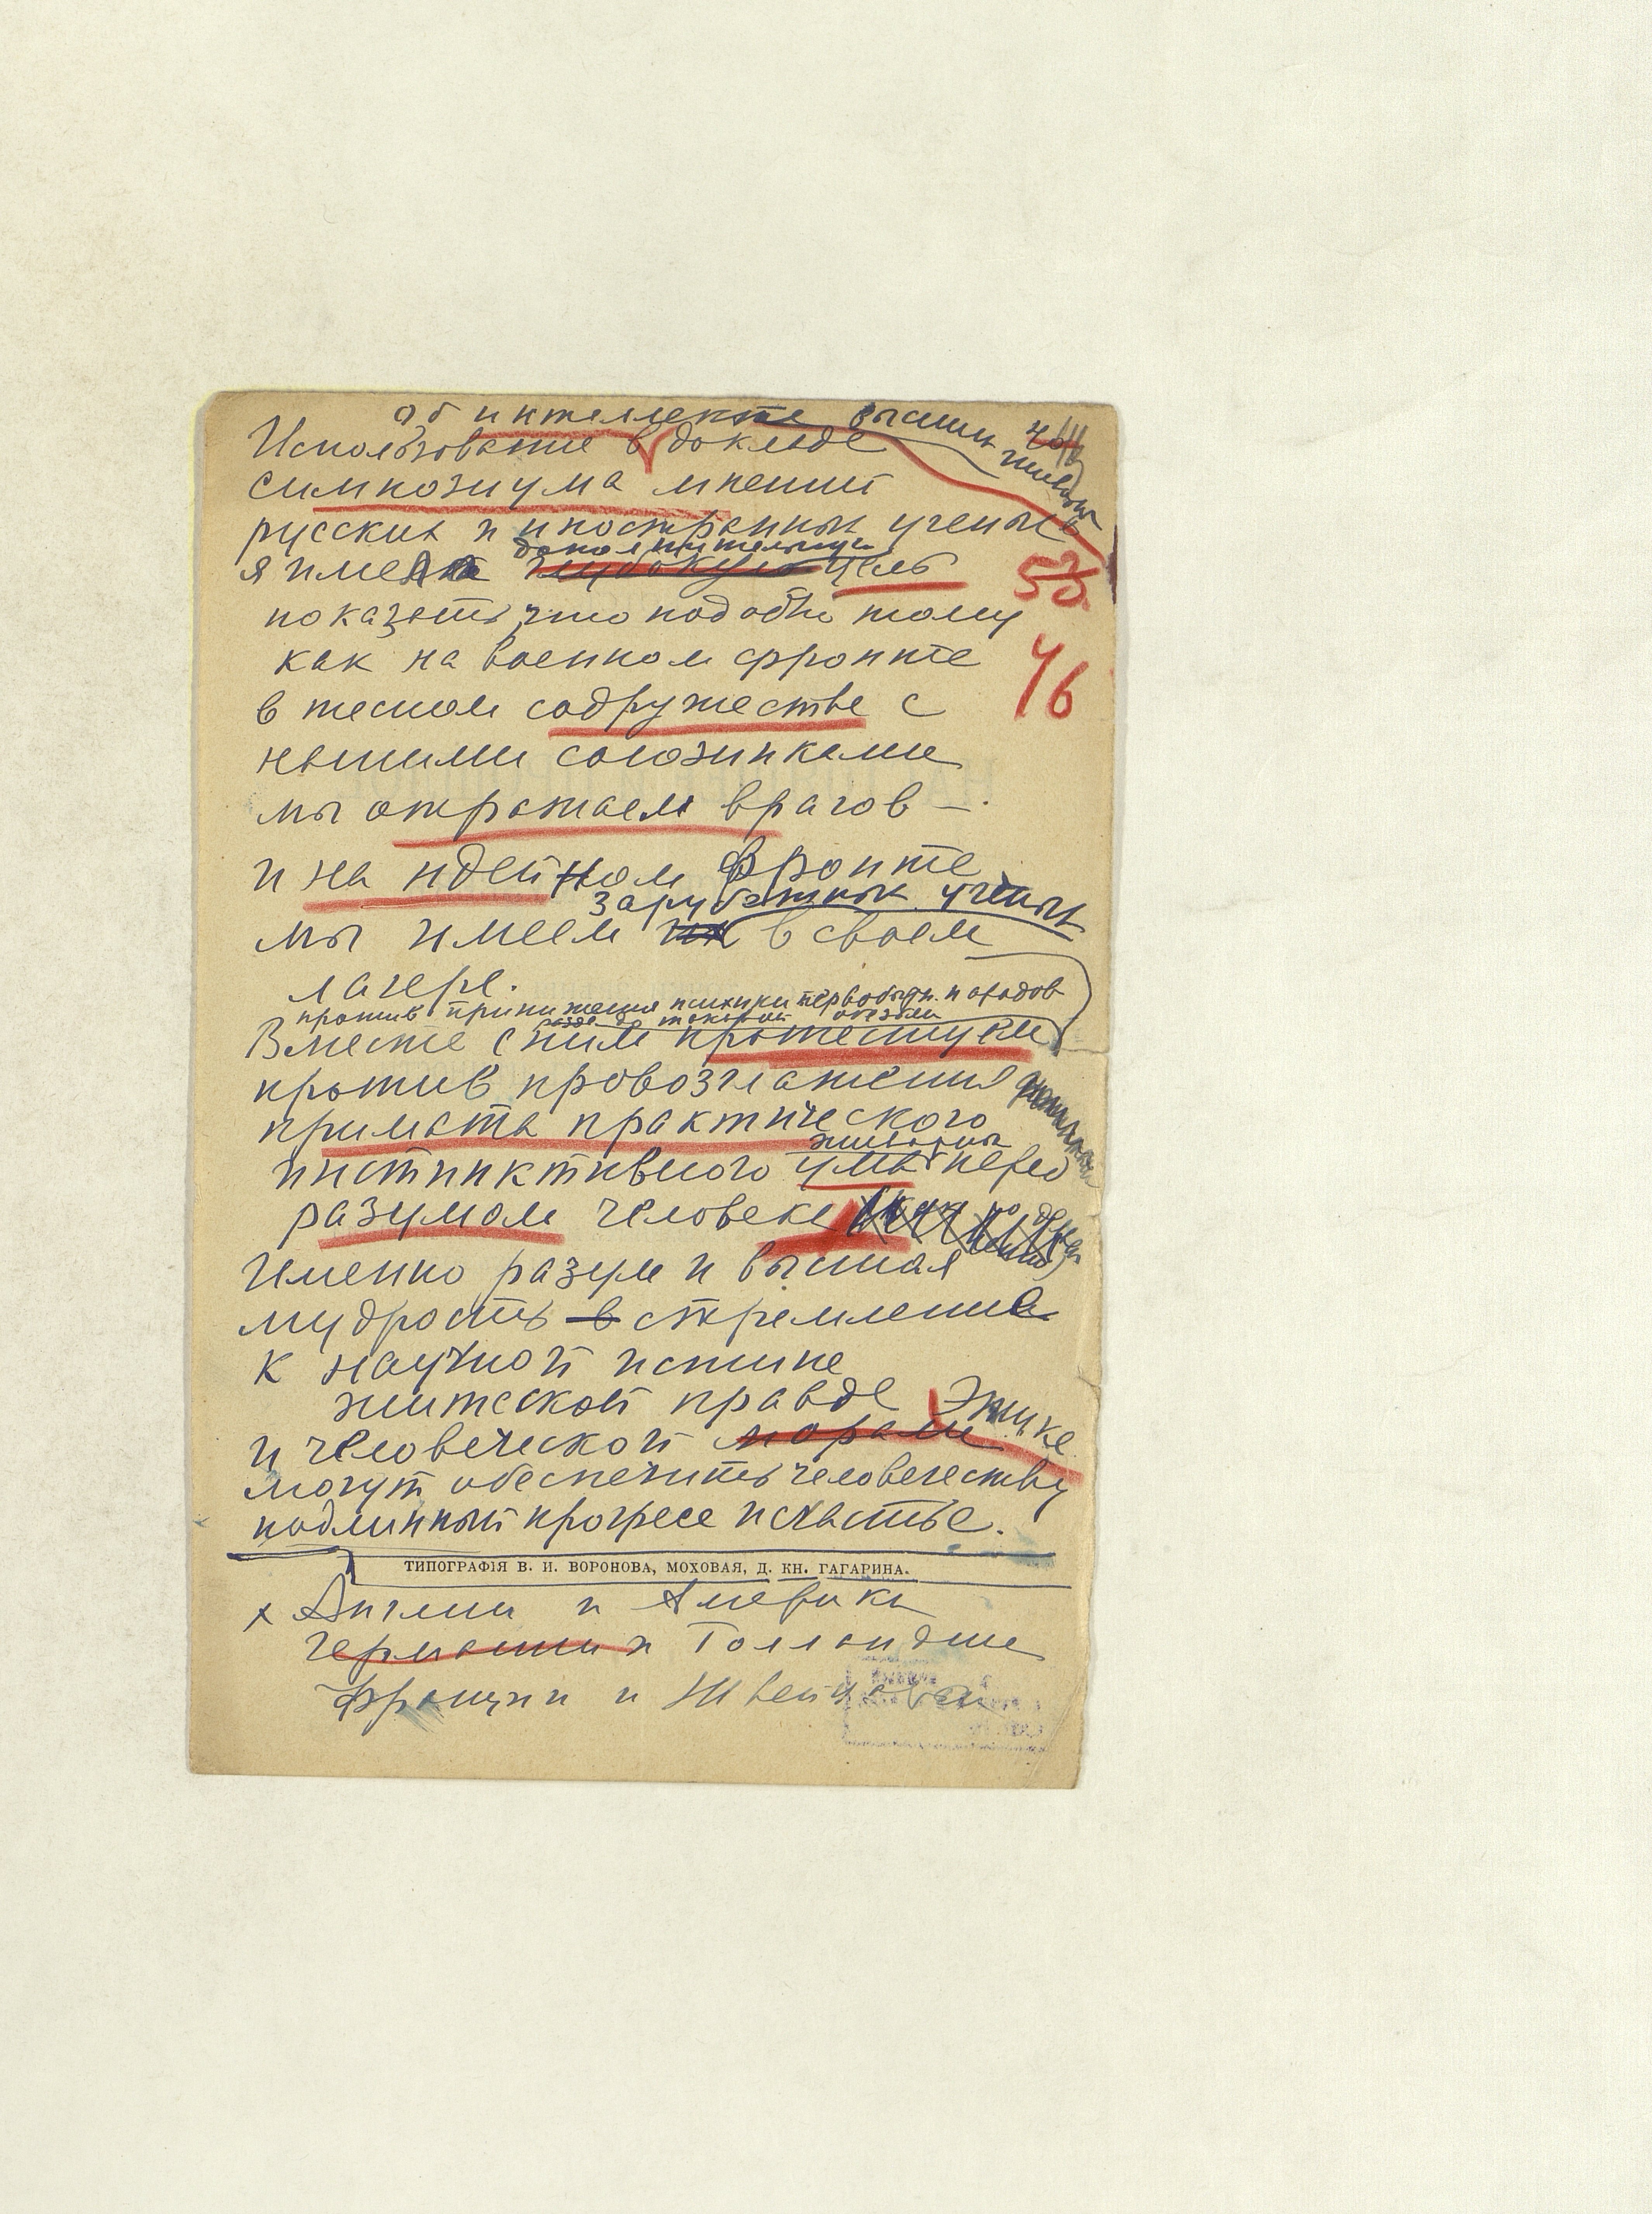 об интеллекте высших животных
Использование в докладе
симпозиума мнений
русских и иностранных ученых
дополнительную
я имела глубокую цель
показать, что подобно тому
как на военном фронте
в тесном содружестве с
нашими союзниками
мы отражаем врагов —
и на идейном фронте
зарубежных ученых
мы имеем их в своем
лагере.
против принижения психики первобытн. народов
до обезьян
Вместе с ними протестуем
против провозглашения
примата практического
животных
инстинктивного ума перед
разумом человека
Именно разум и высшая
мудрость в стремлении
к научной истине
житейской правде этике
и человеческой морали
могут обеспечить человечеству
подлинный прогресс и счастье.
53
46
ТИПОГРАФІЯ В. И. ВОРОНОВА, МОХОВАЯ, Д. КН. ГАГАРИНА.
х Англии и Америки
Германии и Голландии
Франции и Швейцарии